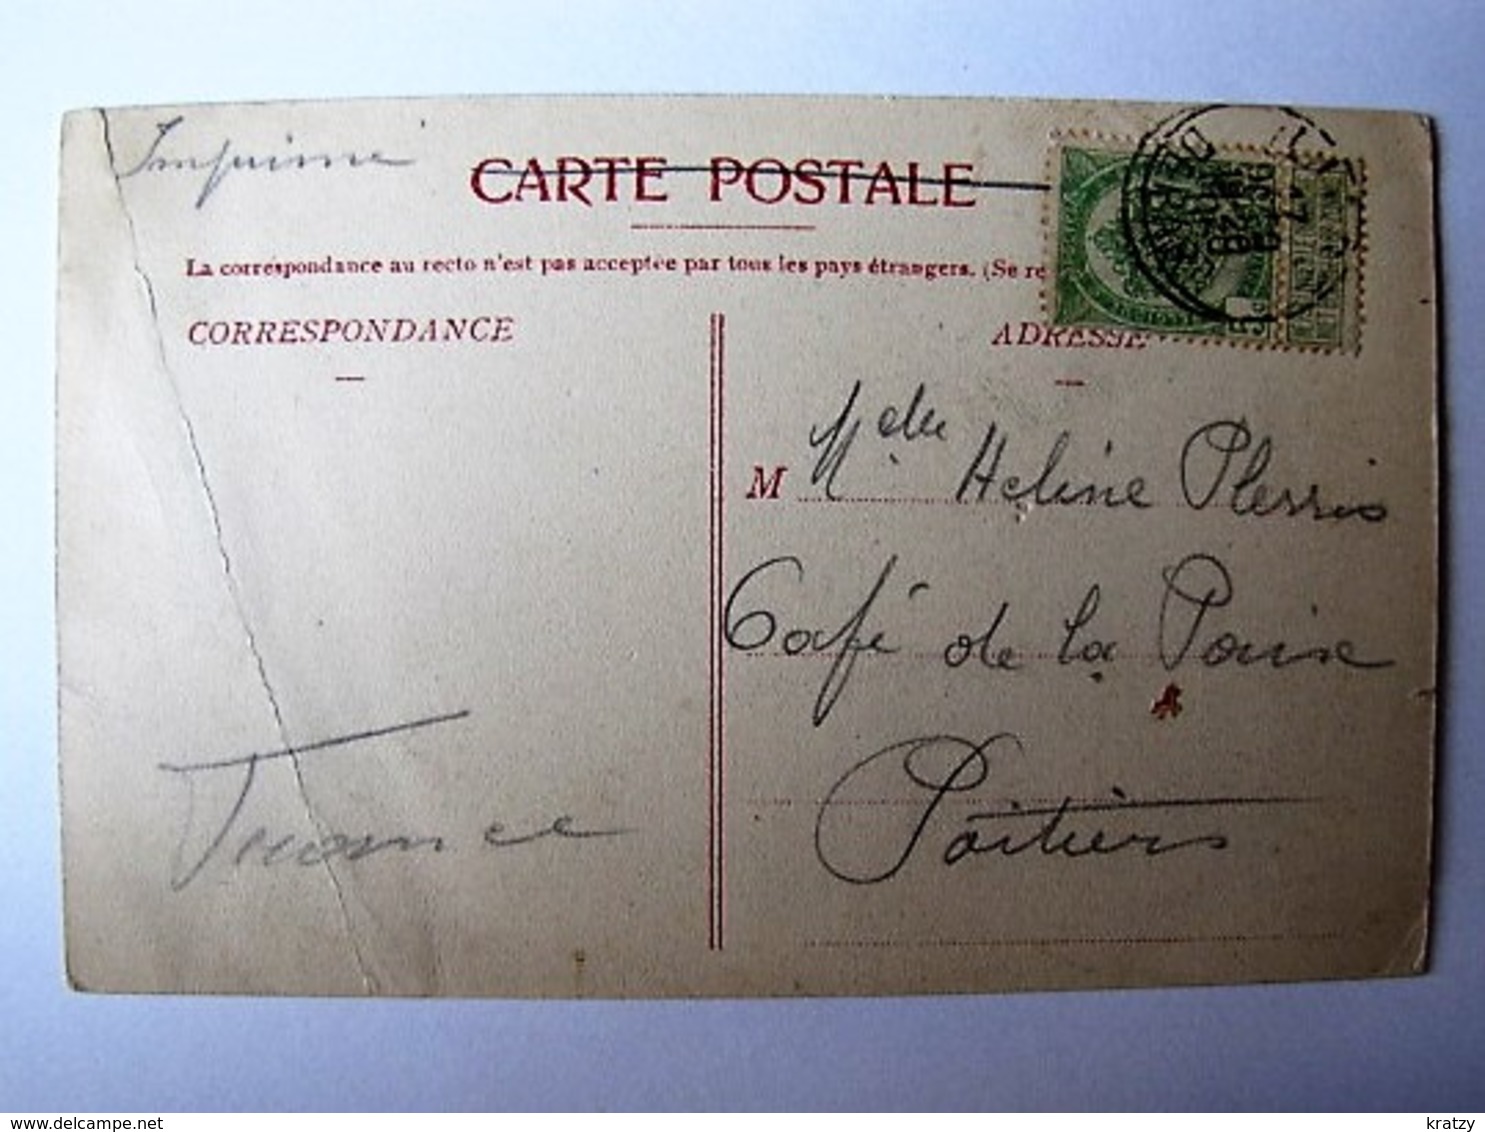 Imprimé
CARTE POSTALE
La correspondance au recto n'est pas acceptée par tous les pays étrangers. (Se re
CORRESPONDANCE
ADRESSE
M Melle Heline Plerris
Café de la Paix
Poitiers
France
delcampe.net
kratzy